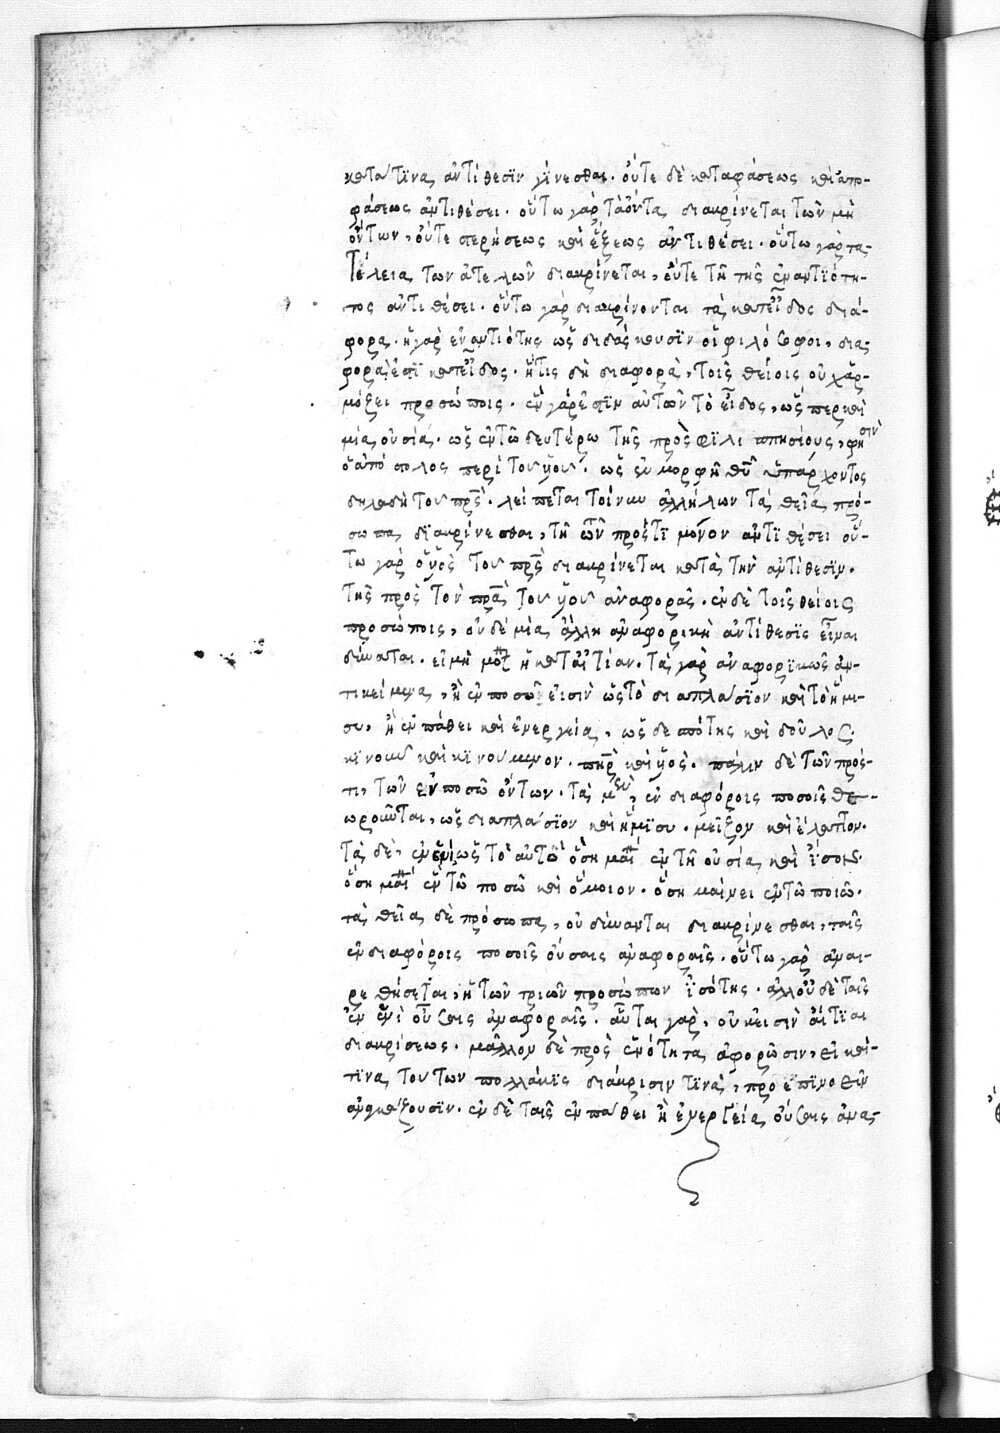 κατά τινα ἀντίθεσιν γίνεσθαι. οὔτε δὲ καταφάσεως καὶ ἀπο-
φάσεως ἀντιθέσει. οὕτω γὰρ τὰ ὄντα διακρίνεται τῶν μὴ
ὄντων, οὔτε στερήσεως καὶ ἕξεως ἀντιθέσει. οὕτω γὰρ τα-
τέλεια τῶν ἀτελῶν διακρίνεται, οὔτε τῇ τῆς ἐναντιότη-
τος ἀντιθέσει. οὕτω γὰρ διακρίνονται τὰ κατεῖδος διά-
φορα. ἡ γὰρ ἐναντιότης ὡς διδάσκουσιν οἱ φιλόσοφοι, δια-
φορά ἐστι κατεῖδος. ἥτις δὴ διαφορὰ, τοῖς θείοις οὐχ ἁρ-
μόξει προσώποις. ἓν γάρ ἐστιν αὐτῶν τὸ εἶδος, ὥσπερ καὶ
μία οὐσία. ὡς ἐν τῶ δευτέρω τῆς πρὸς φιλιππησίους, φησὶν
ὁ ἀπόστολος περὶ τοῦ υἱοῦ. ὡς ἐν μορφῇ θῦ ὑπάρχοντος
δηλαδὴ τοῦ πρς. λείπεται τοίνυν ἀλλήλων τὰ θεῖα πρό-
σωπα διακρίνεσθαι, τῇ τῶν πρός τι μόνον ἀντιθέσει οὕ-
τω γὰρ ὁ υἱὸς τοῦ πρς διακρίνεται κατὰ τὴν ἀντίθεσιν.
τῆς πρὸς τὸν πρα τοῦ υἱοῦ ἀναφορᾶς. ἐν δὲ τοῖς θείοις
προσώποις, οὐδεμία ἄλλη ἀναφορικὴ ἀντίθεσις εἶναι
δύναται. εἰ μὴ ἡ κατ αἰτίαν. τὰ γὰρ ἀναφορικῶς ἀν-
τικείμενα, ἢ ἐν ποσῶ εἰσὶν ὡς τὸ διαπλάσιον καὶ τὸ ἥμι-
συ, ἢ ἐν πάθει καὶ ἐνεργεία, ὡς δεσπότης καὶ δοῦλος.
κινοῦν καὶ κινούμενον. πηρ καὶ υἱός. πάλιν δὲ τῶν πρός-
τι, τῶν ἐν ποσῶ ὄντων. τὰ μὲν, ἐν διαφόροις ποσοῖς θε-
ωροῦνται, ὡς διαπλάσιον καὶ ἥμισυ. μεῖζον καὶ ἔλαττον.
τὰ δὲ, ἐν ἑνί, ὡς τὸ αὐτὸ ὅση ἐν τῇ οὐσία καὶ ἴσον.
ὅση ἐν τῶ ποσῶ καὶ ὅμοιον. ὅση μαίνει ἐν τῶ ποιῶ.
τὰ θεῖα δὲ πρόσωπα, οὐ δύνανται διακρίνεσθαι, ταῖς
ἐν διαφόροις ποσοῖς οὔσαις ἀναφοραῖς. οὕτω γὰρ ἀναι-
ρεθήσεται, ἡ τῶν τριῶν προσώπων ἰσότης. ἀλλ οὐδὲ ταῖς
ἐν ἑνὶ οὔσαις ἀναφοραῖς. αὗται γὰρ, οὐκ εἰσὶν αἴτιαι
διακρίσεως. μᾶλλον δὲ πρὸς ἑνότητα ἀφορῶσιν, εἰ καί-
τινα τούτων πολλάκις διάκρισιν τινὰ, προεπινοεῖν
ἀναγκάζουσιν. ἐν δὲ ταῖς ἐν πάθει ἢ ἐνεργεία οὔσαις ἀνα-